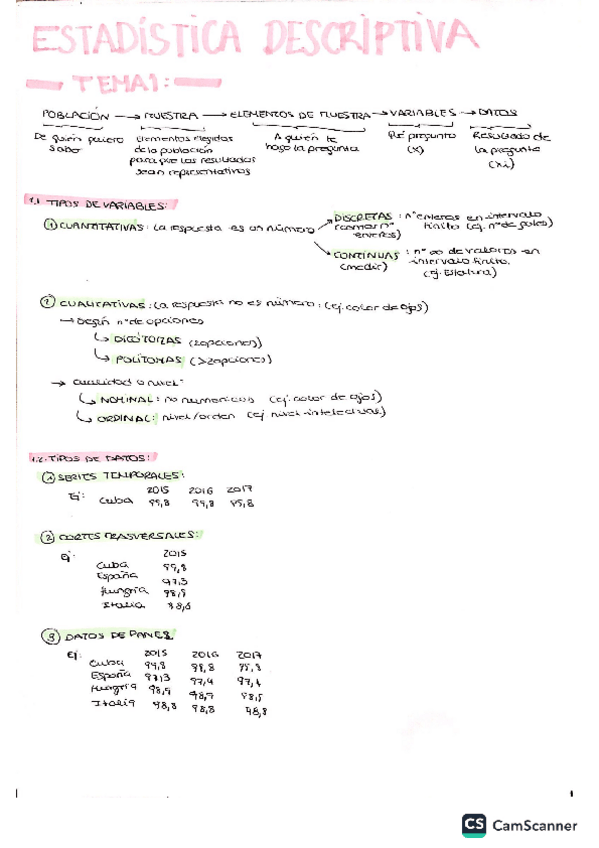 ESTADÍSTICA DESCRIPTIVA
TEMA 1:
POBLACIÓN → MUESTRA → ELEMENTOS DE MUESTRA → VARIABLES → DATOS
De quién quiero saber
Elementos elegidos de la población para que los resultados sean representativos
A quién le hago la pregunta
Qué pregunto (x)
Resultado de la pregunta (xi)
1.1 TIPOS DE VARIABLES:
① CUANTITATIVAS: La respuesta es un número
DISCRETAS: nº enteros en intervalo finito (ej. nº de goles)
CONTINUAS: nº ∞ de valores en intervalo finito.
(medir) (ej. Estatura)
② CUALITATIVAS: La respuesta no es número: (ej. color de ojos)
→ Según nº de opciones
↳ DICÓTOMAS (2 opciones)
↳ POLITOMAS (>2 opciones)
→ Cualidad o nivel:
↳ NOMINAL: no numéricos (ej. color de ojos)
↳ ORDINAL: nivel/orden (ej. nivel intelectual)
1.2. TIPOS DE DATOS:
① SERIES TEMPORALES:
Ej: 2015 2016 2017
Cuba 99,8 99,8 95,8
② CORTES TRASVERSALES:
Ej: 2015
Cuba 99,8
España 97,3
Hungría 98,9
Italia 98,6
③ DATOS DE PANEL
Ej: 2015 2016 2017
Cuba 99,8 98,8 95,8
España 97,3 97,4 97,4
Hungría 98,9 98,9 98,5
Italia 98,8 98,8 98,8
CS CamScanner